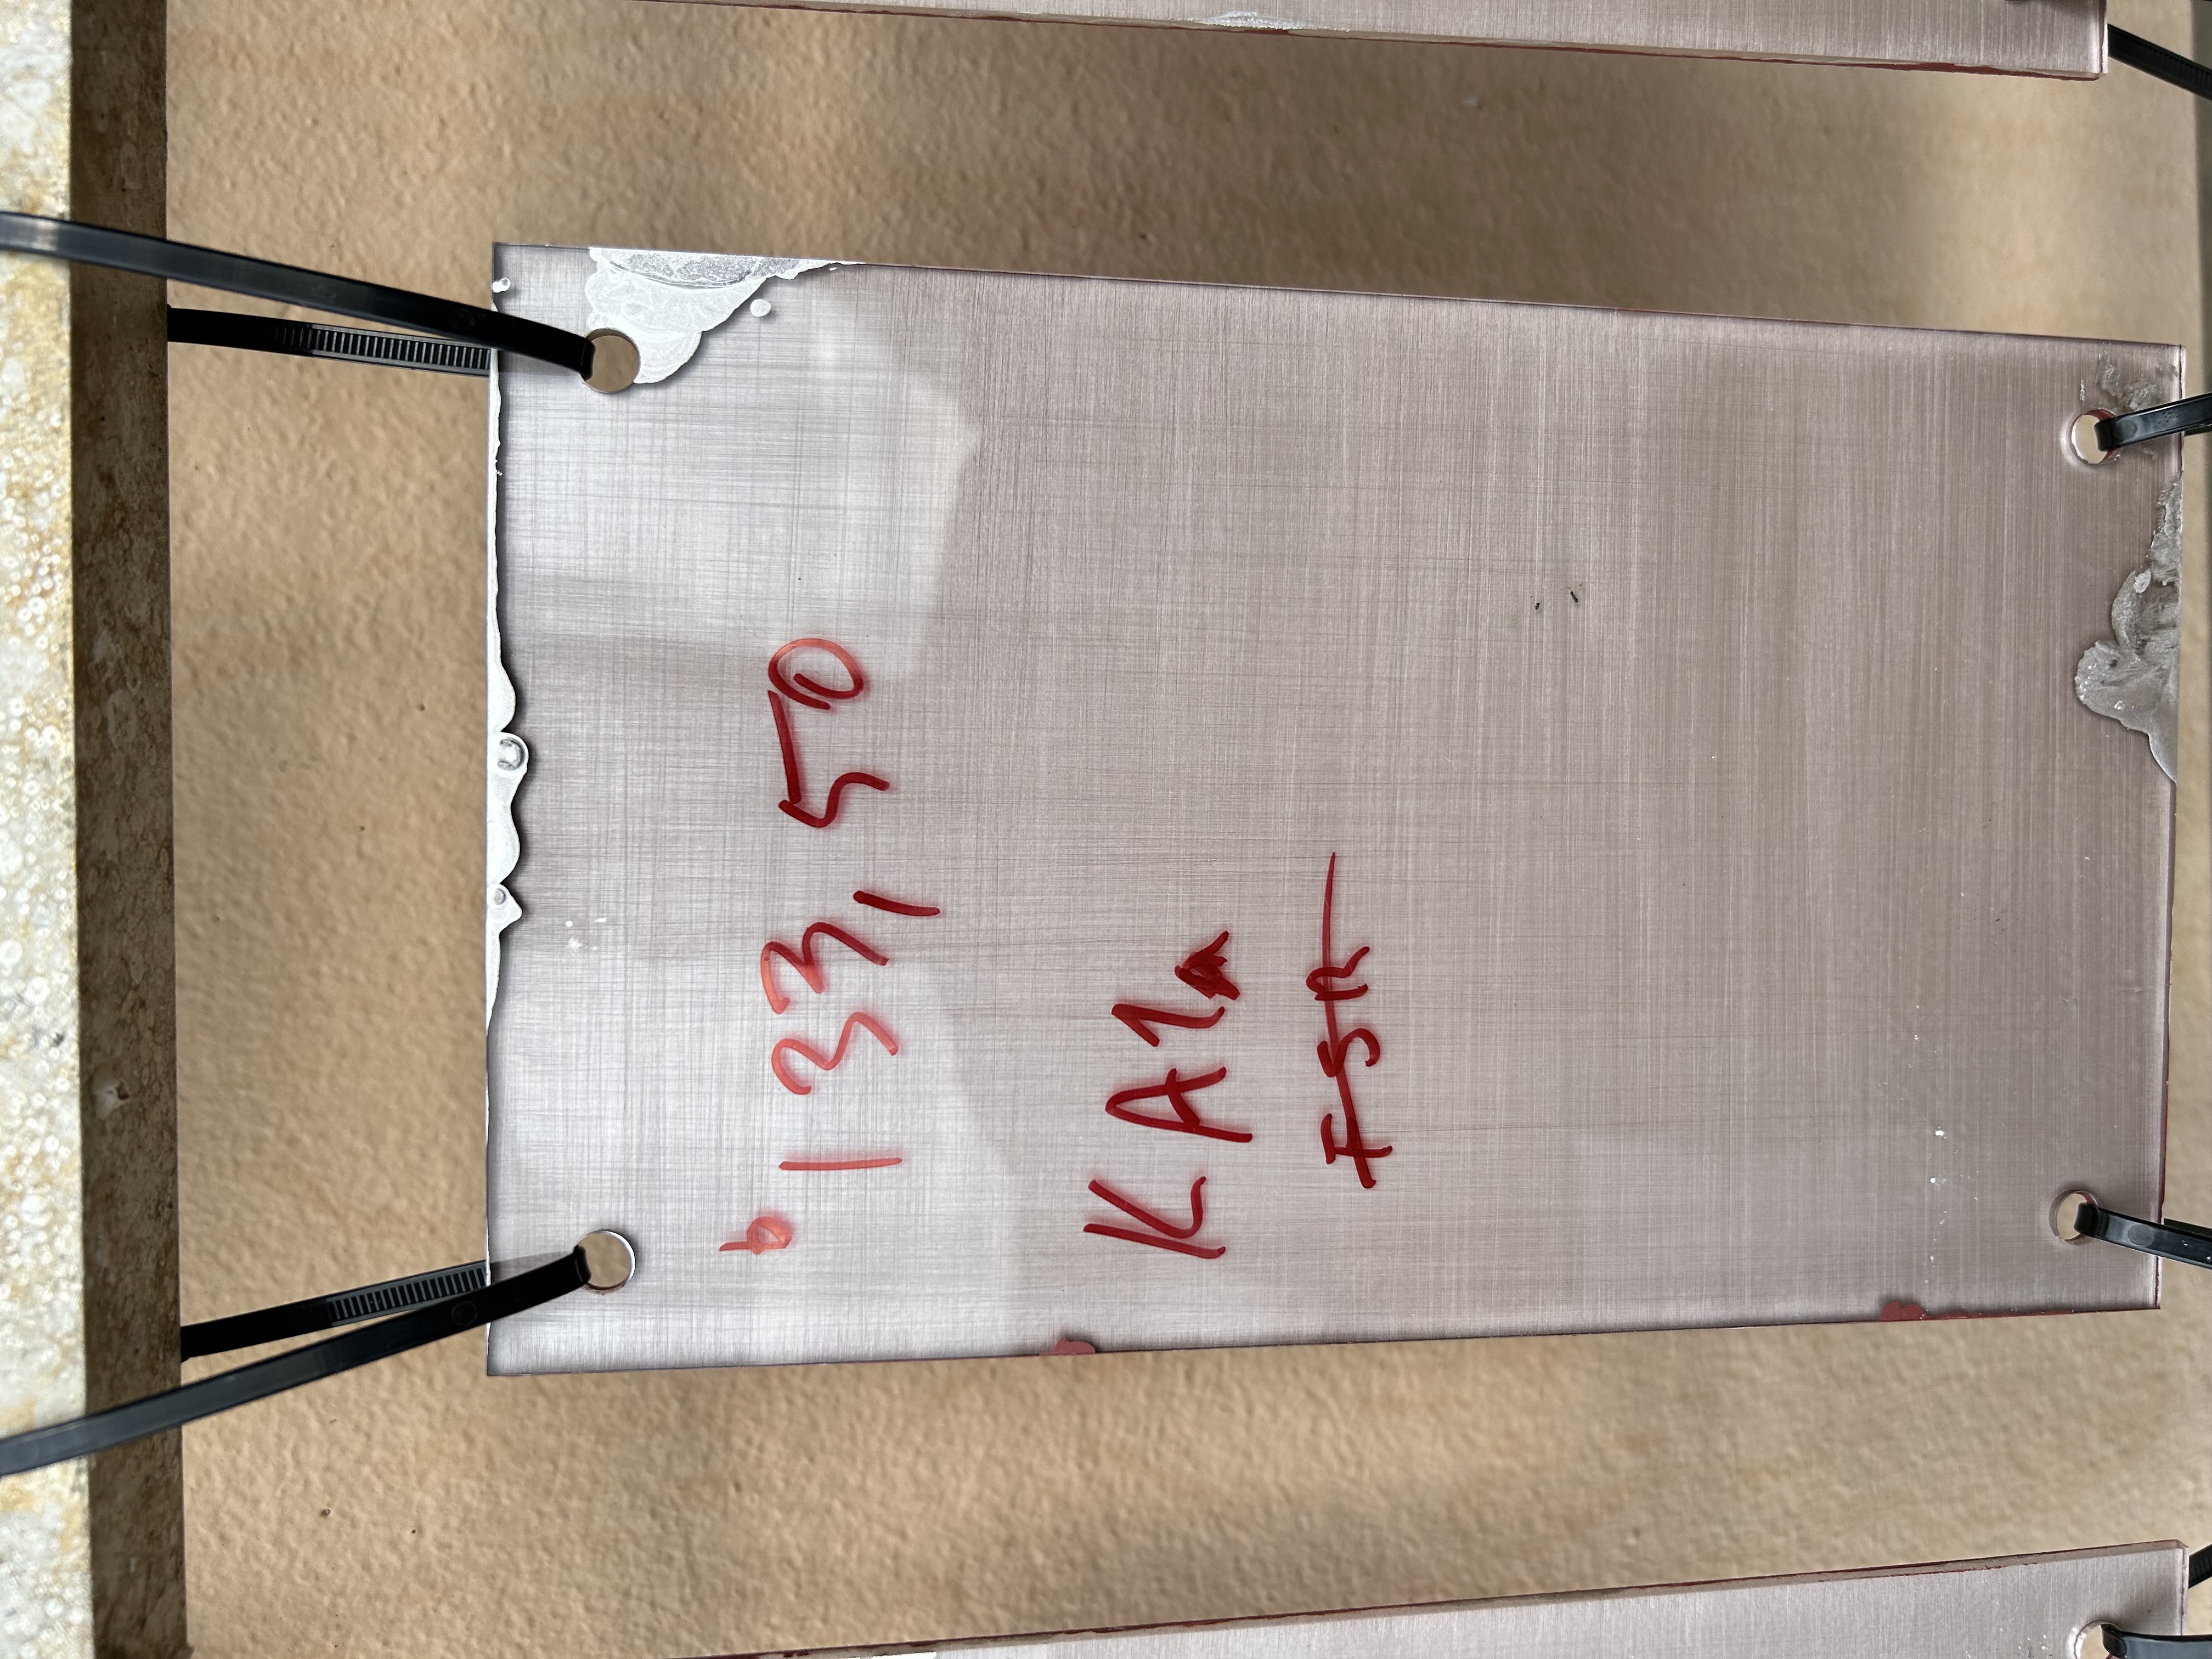 b 133,50
KA1
FSR